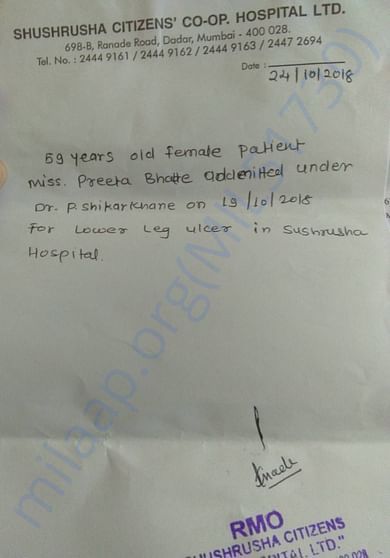 SHUSHRUSHA CITIZENS' CO-OP. HOSPITAL LTD.
698-B, Ranade Road, Dadar, Mumbai - 400 028.
Tel. No. : 2444 9161 / 2444 9162 / 2444 9163 / 2447 2694
Date : 24/10/2018
59 years old female patient
miss. Preeta Bhatte addmitted under
Dr. P. Shikarkhane on 19/10/2018
For Lower Leg ulcer in Sushrusha
Hospital.
RMO
SHUSHRUSHA CITIZENS
LTD."
milaap.org(MILS1730)